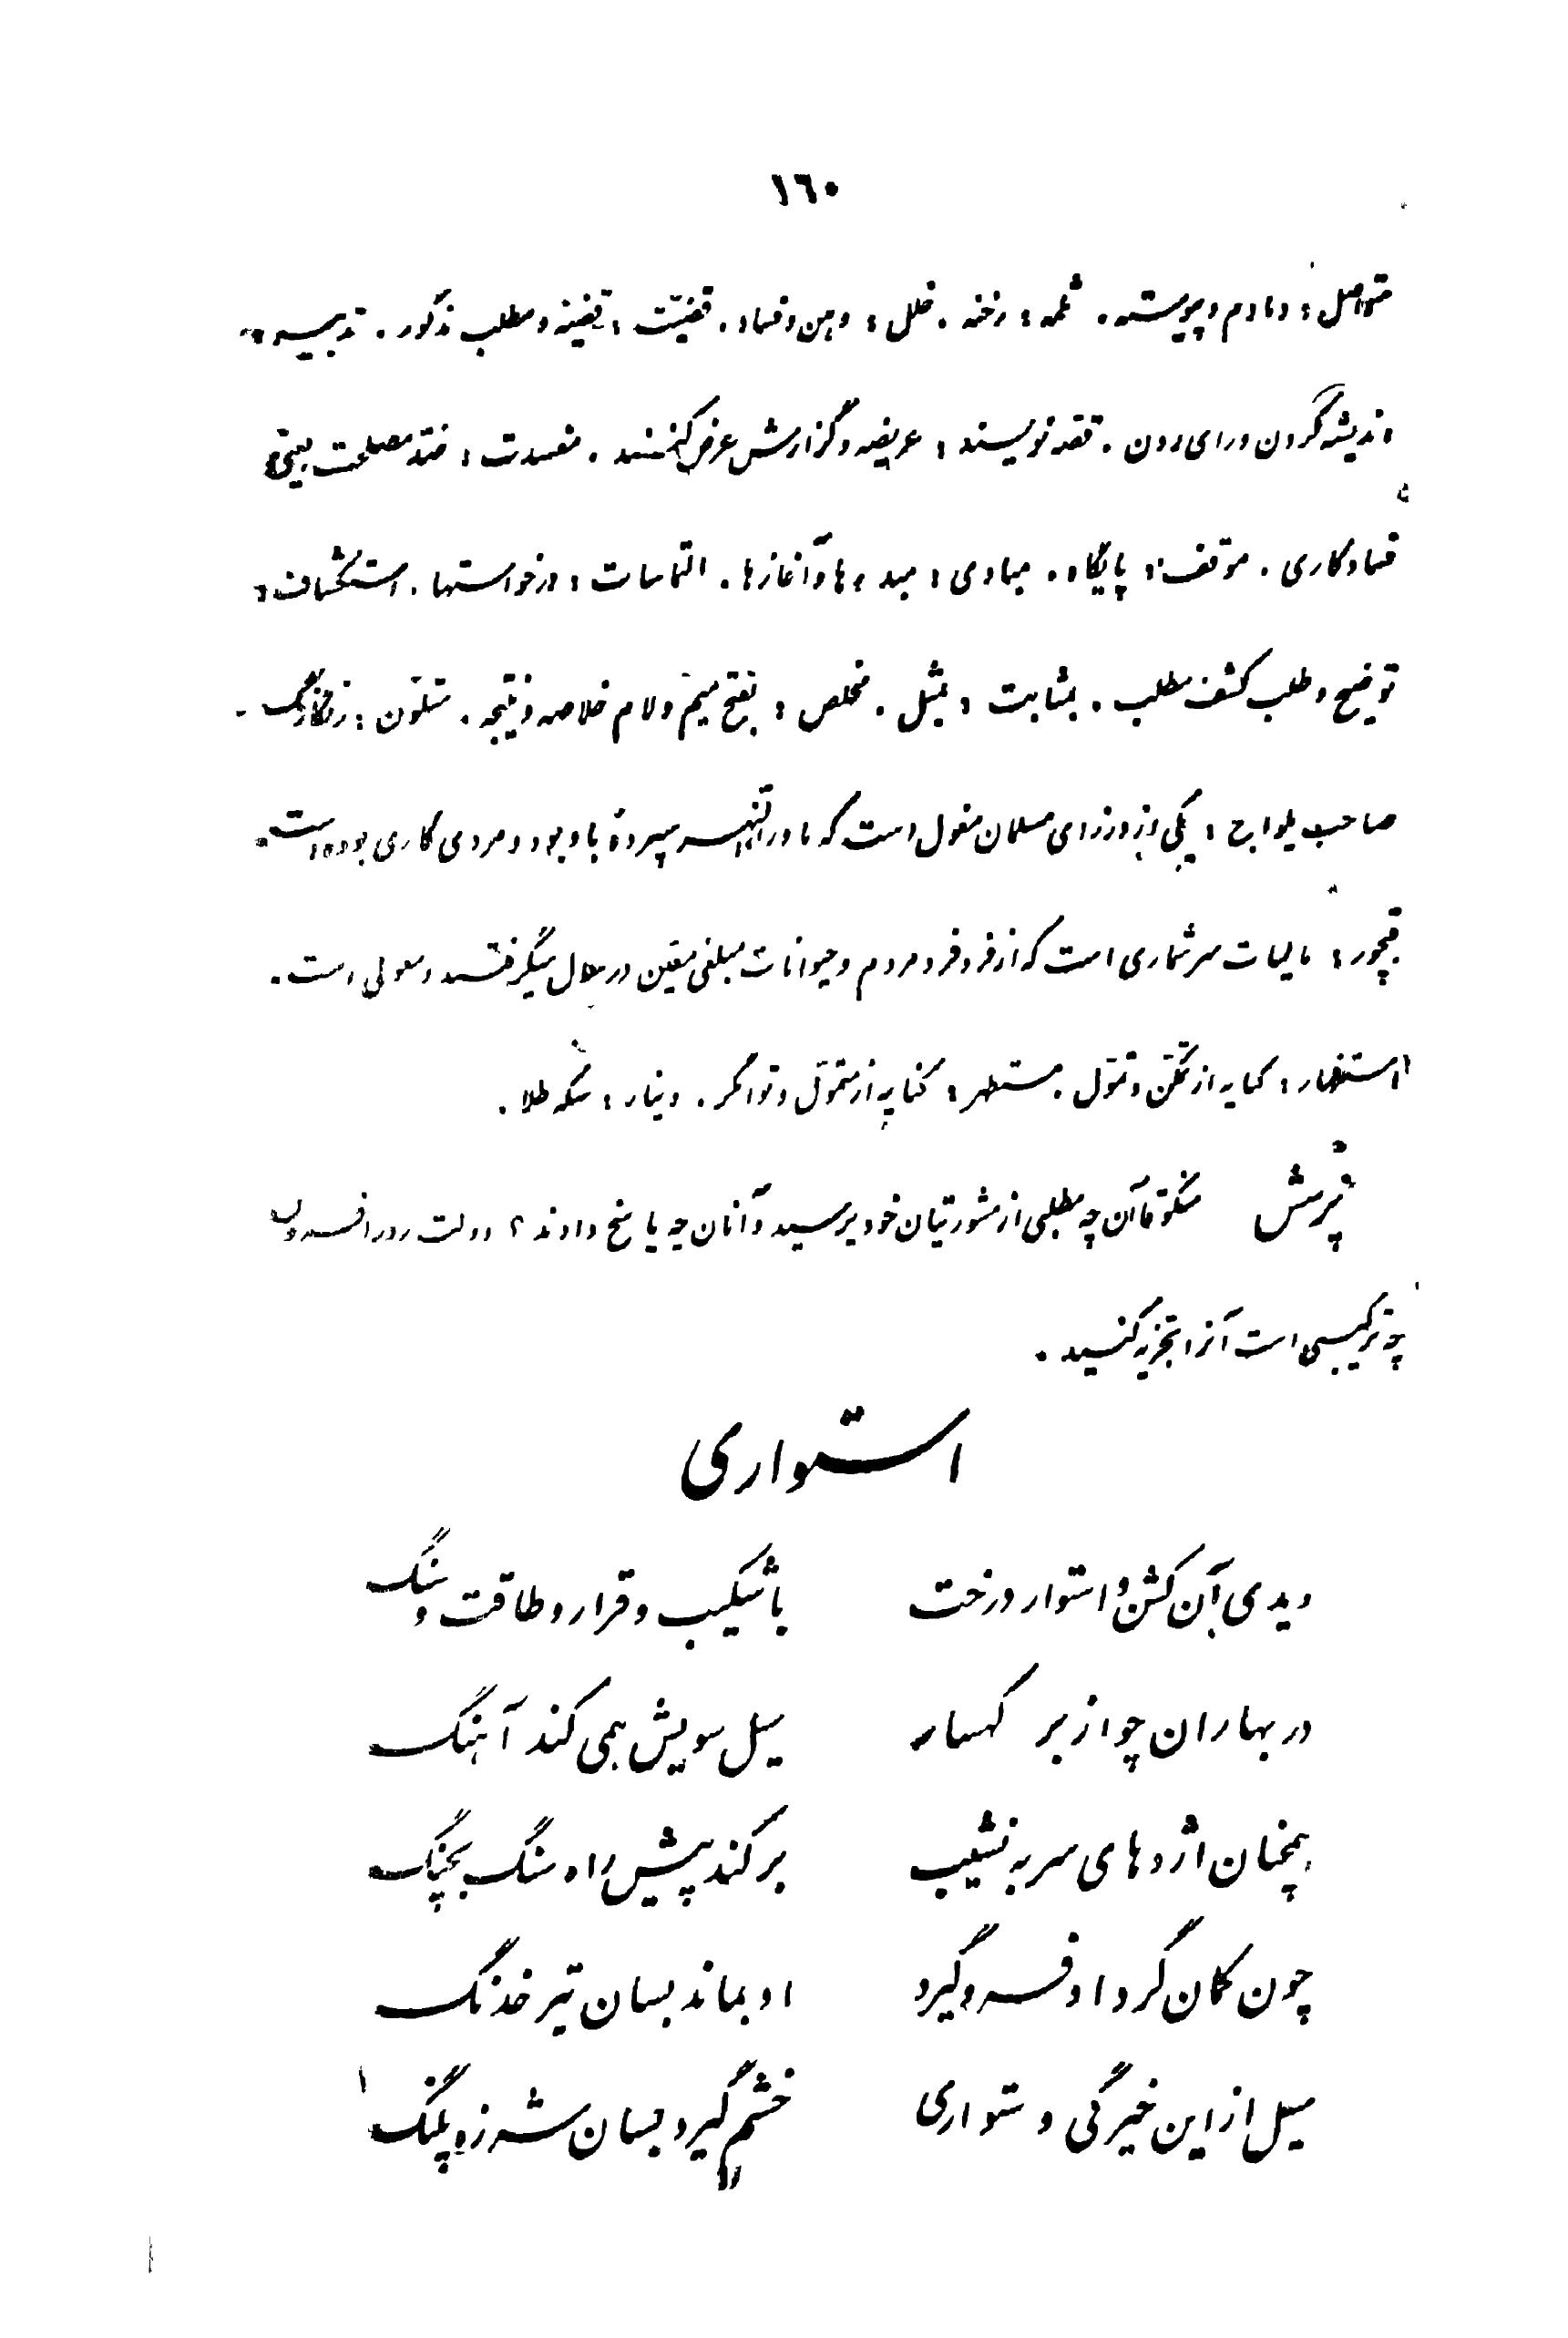 ۱٦۰
متواصل : دمادم و پیوسته . ثلمه : رخنه . خلل : وهن و فساد . قضیّت : قضیّه و مطلب مذکور . تدبیر :
اندیشه کردن و رای زدن . قصه نویسند : عریضه و گزارش عرض کنند . مفسدت : ضدّ مصلحت یعنی
فسادکاری . موقف : پایگاه . مبادی : مبدءها و آغازها . التماسات : درخواستها . استکشاف :
توضیح و طلب کشف مطلب . بمثابت : بمثل . مخلص : بفتح میم و لام خلاصه و نتیجه . متلوّن : رنگارنگ .
صاحب یلواج : یکی از وزرای مسلمان مغول است که ماوراءالنهر سپردۀ باو بود و مردی کاری بوده است .
قبچور : مالیات سرشماری است که از فرد فرد مردم و حیوانات مبلغی معیّن در سال میگرفتند و مغولی است .
استظهار : کنایه از تمکّن و تموّل . مستظهر : کنایه از متموّل و توانگر . دینار : سکه طلا .
پرسش منکوقاآن چه مطلبی از مشورتیان خود پرسید و آنان چه پاسخ دادند ؟ دولت روزافزون
چه ترکیبی است آنرا تجزیه کنید .
استواری
دیدی آن کشن و استوار درخت با شکیب و قرار و طاقت و سنگ
در بهاران چو از بر کهسار سیل سویش همی کند آهنگ
همچنان اژدهای سر به نشیب برکند پیش راه سنگ بچنگ
چون کمان گرد او فرو گیرد او بماند بسان تیر خدنگ
سیل از این خیرگی و ستواری خشم گیرد بسان شرزه پلنگ